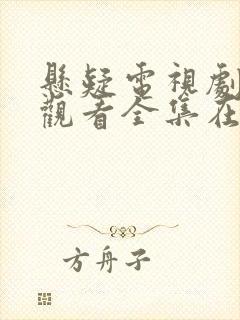 懸疑電視劇
觀看全集在
方舟子